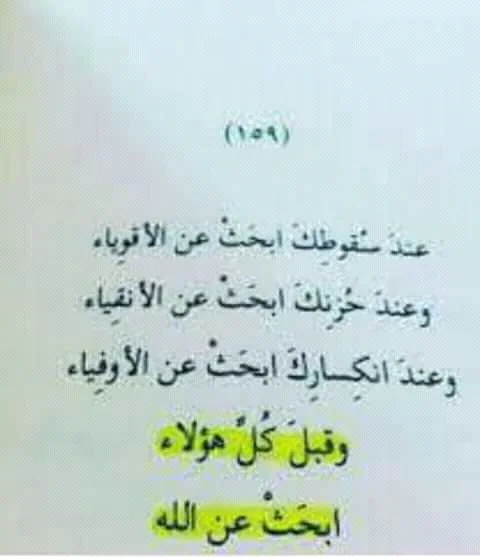 (١٥٩)
عندَ سُقوطِكَ ابحَثْ عن الأقوِياء
وعندَ حُزنِكَ ابحَثْ عن الأنقِياء
وعندَ انكِسارِكَ ابحَثْ عن الأوفِياء
وقبلَ كُلِّ هؤلاء
ابحَثْ عن الله